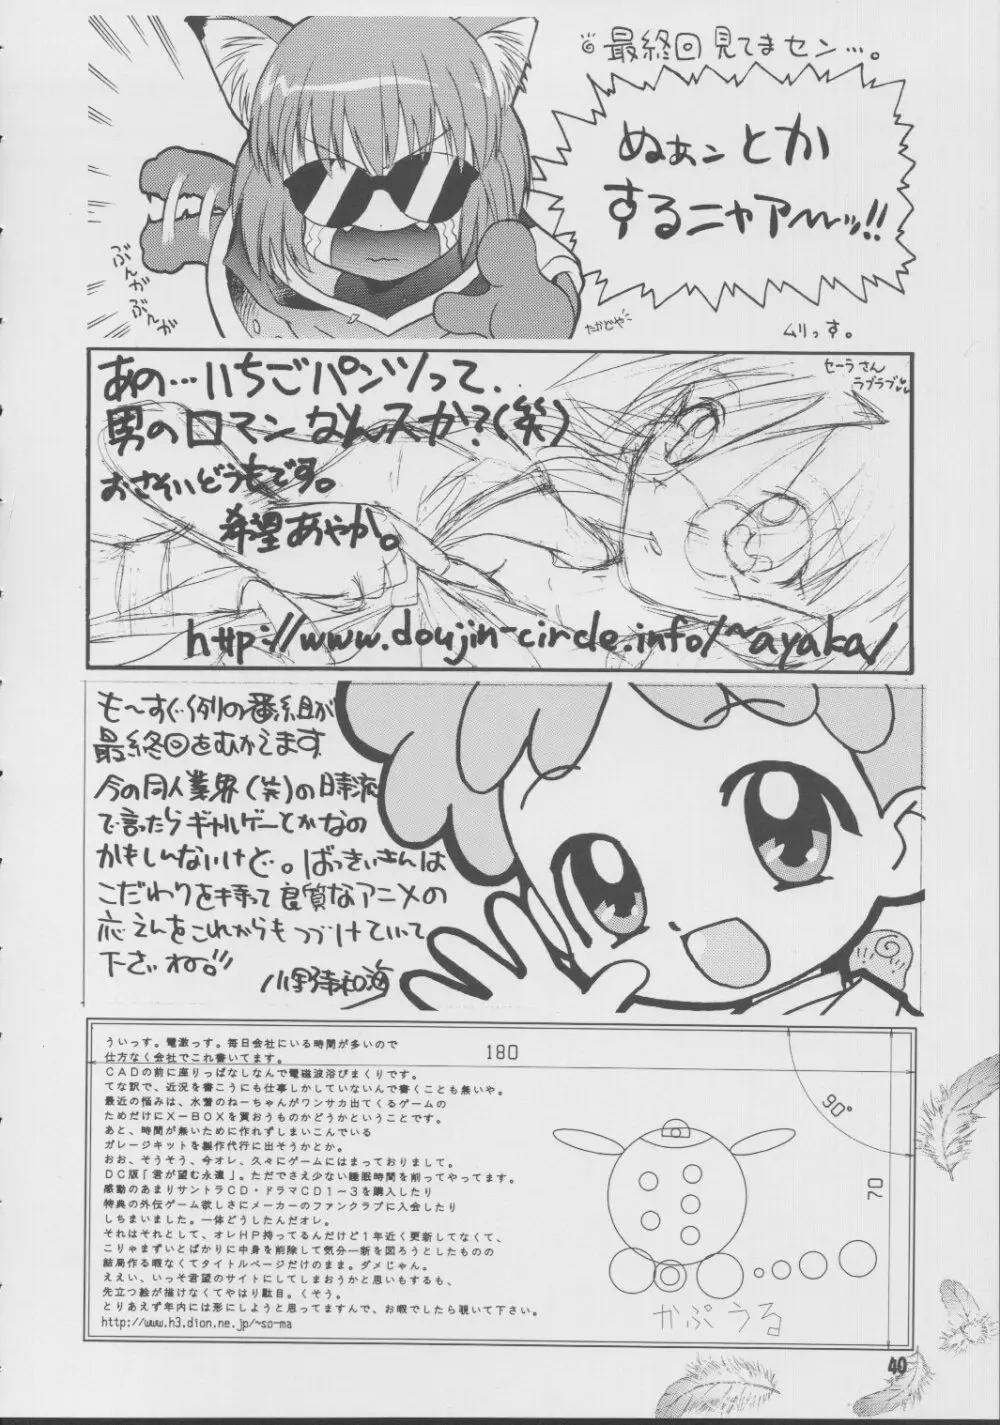 最終回見てませン…。
ぬぁぁン とか
するニャアーーッ!!
ぶんが
ぶんが
たかどや
ムリっす。
あの…いちごパンツって、
男のロマンなんスか?(笑)
おさそいどうもです。
希望あやか。
セーラさん
ラブラブ
http://www.doujin-circle.info/~ayaka/
も〜すぐ例の番組が
最終回をむかえます
今の同人業界(笑)の時流
で言ったらギャルゲーとかなの
かもしんないけど。ばっきぃさんは
こだわりを持って良質なアニメの
応えんをこれからもつづけていって
下さいね。!!
小野寺和海
ういっす。電激っす。毎日会社にいる時間が多いので
仕方なく会社でこれ書いてます。
CADの前に座りっぱなしなんで電磁波浴びまくりです。
てな訳で、近況を書こうにも仕事しかしていないんで書くことも無いや。
最近の悩みは、水着のねーちゃんがワンサカ出てくるゲームの
ためだけにX−BOXを買おうものかどうかということです。
あと、時間が無いために作れずしまいこんでいる
ガレージキットを製作代行に出そうかとか。
おお、そうそう、今オレ、久々にゲームにはまっておりまして。
DC版「君が望む永遠」。ただでさえ少ない睡眠時間を削ってやってます。
感動のあまりサントラCD・ドラマCD1〜3を購入したり
特典の外伝ゲーム欲しさにメーカーのファンクラブに入会したり
しちまいました。一体どうしたんだオレ。
それはそれとして、オレHP持ってるんだけど1年近く更新してなくて、
こりゃまずいとばかりに中身を削除して気分一新を図ろうとしたものの
結局作る暇なくてタイトルページだけのまま。ダメじゃん。
ええい、いっそ君望のサイトにしてしまおうかと思いもするも、
先立つ絵が描けなくてやはり駄目。くそう。
とりあえず年内には形にしようと思ってますんで、お暇でしたら覗いて下さい。
http://www.h3.dion.ne.jp/~so-ma
180
90°
70
かぷうる
40